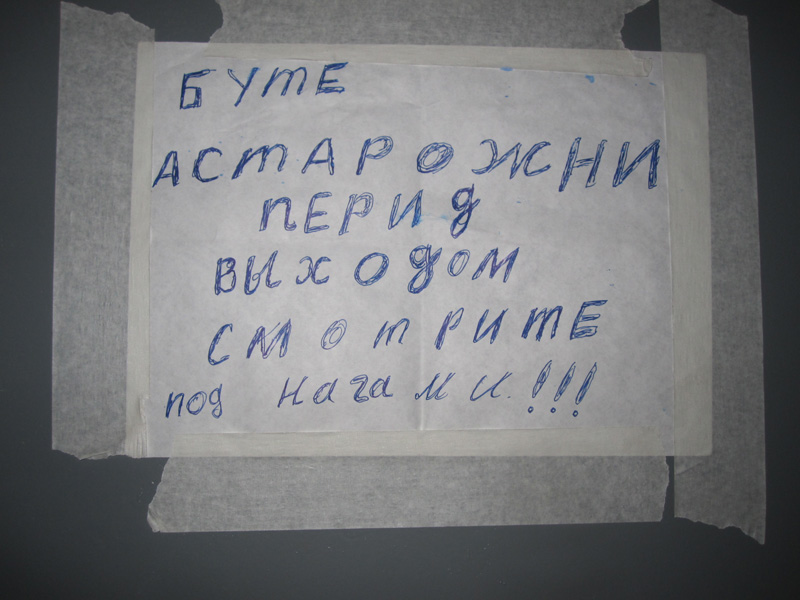 БУТЕ
АСТАРОЖНИ
ПЕРИД
ВЫХОДОМ
СМОТРИТЕ
под нагами.!!!